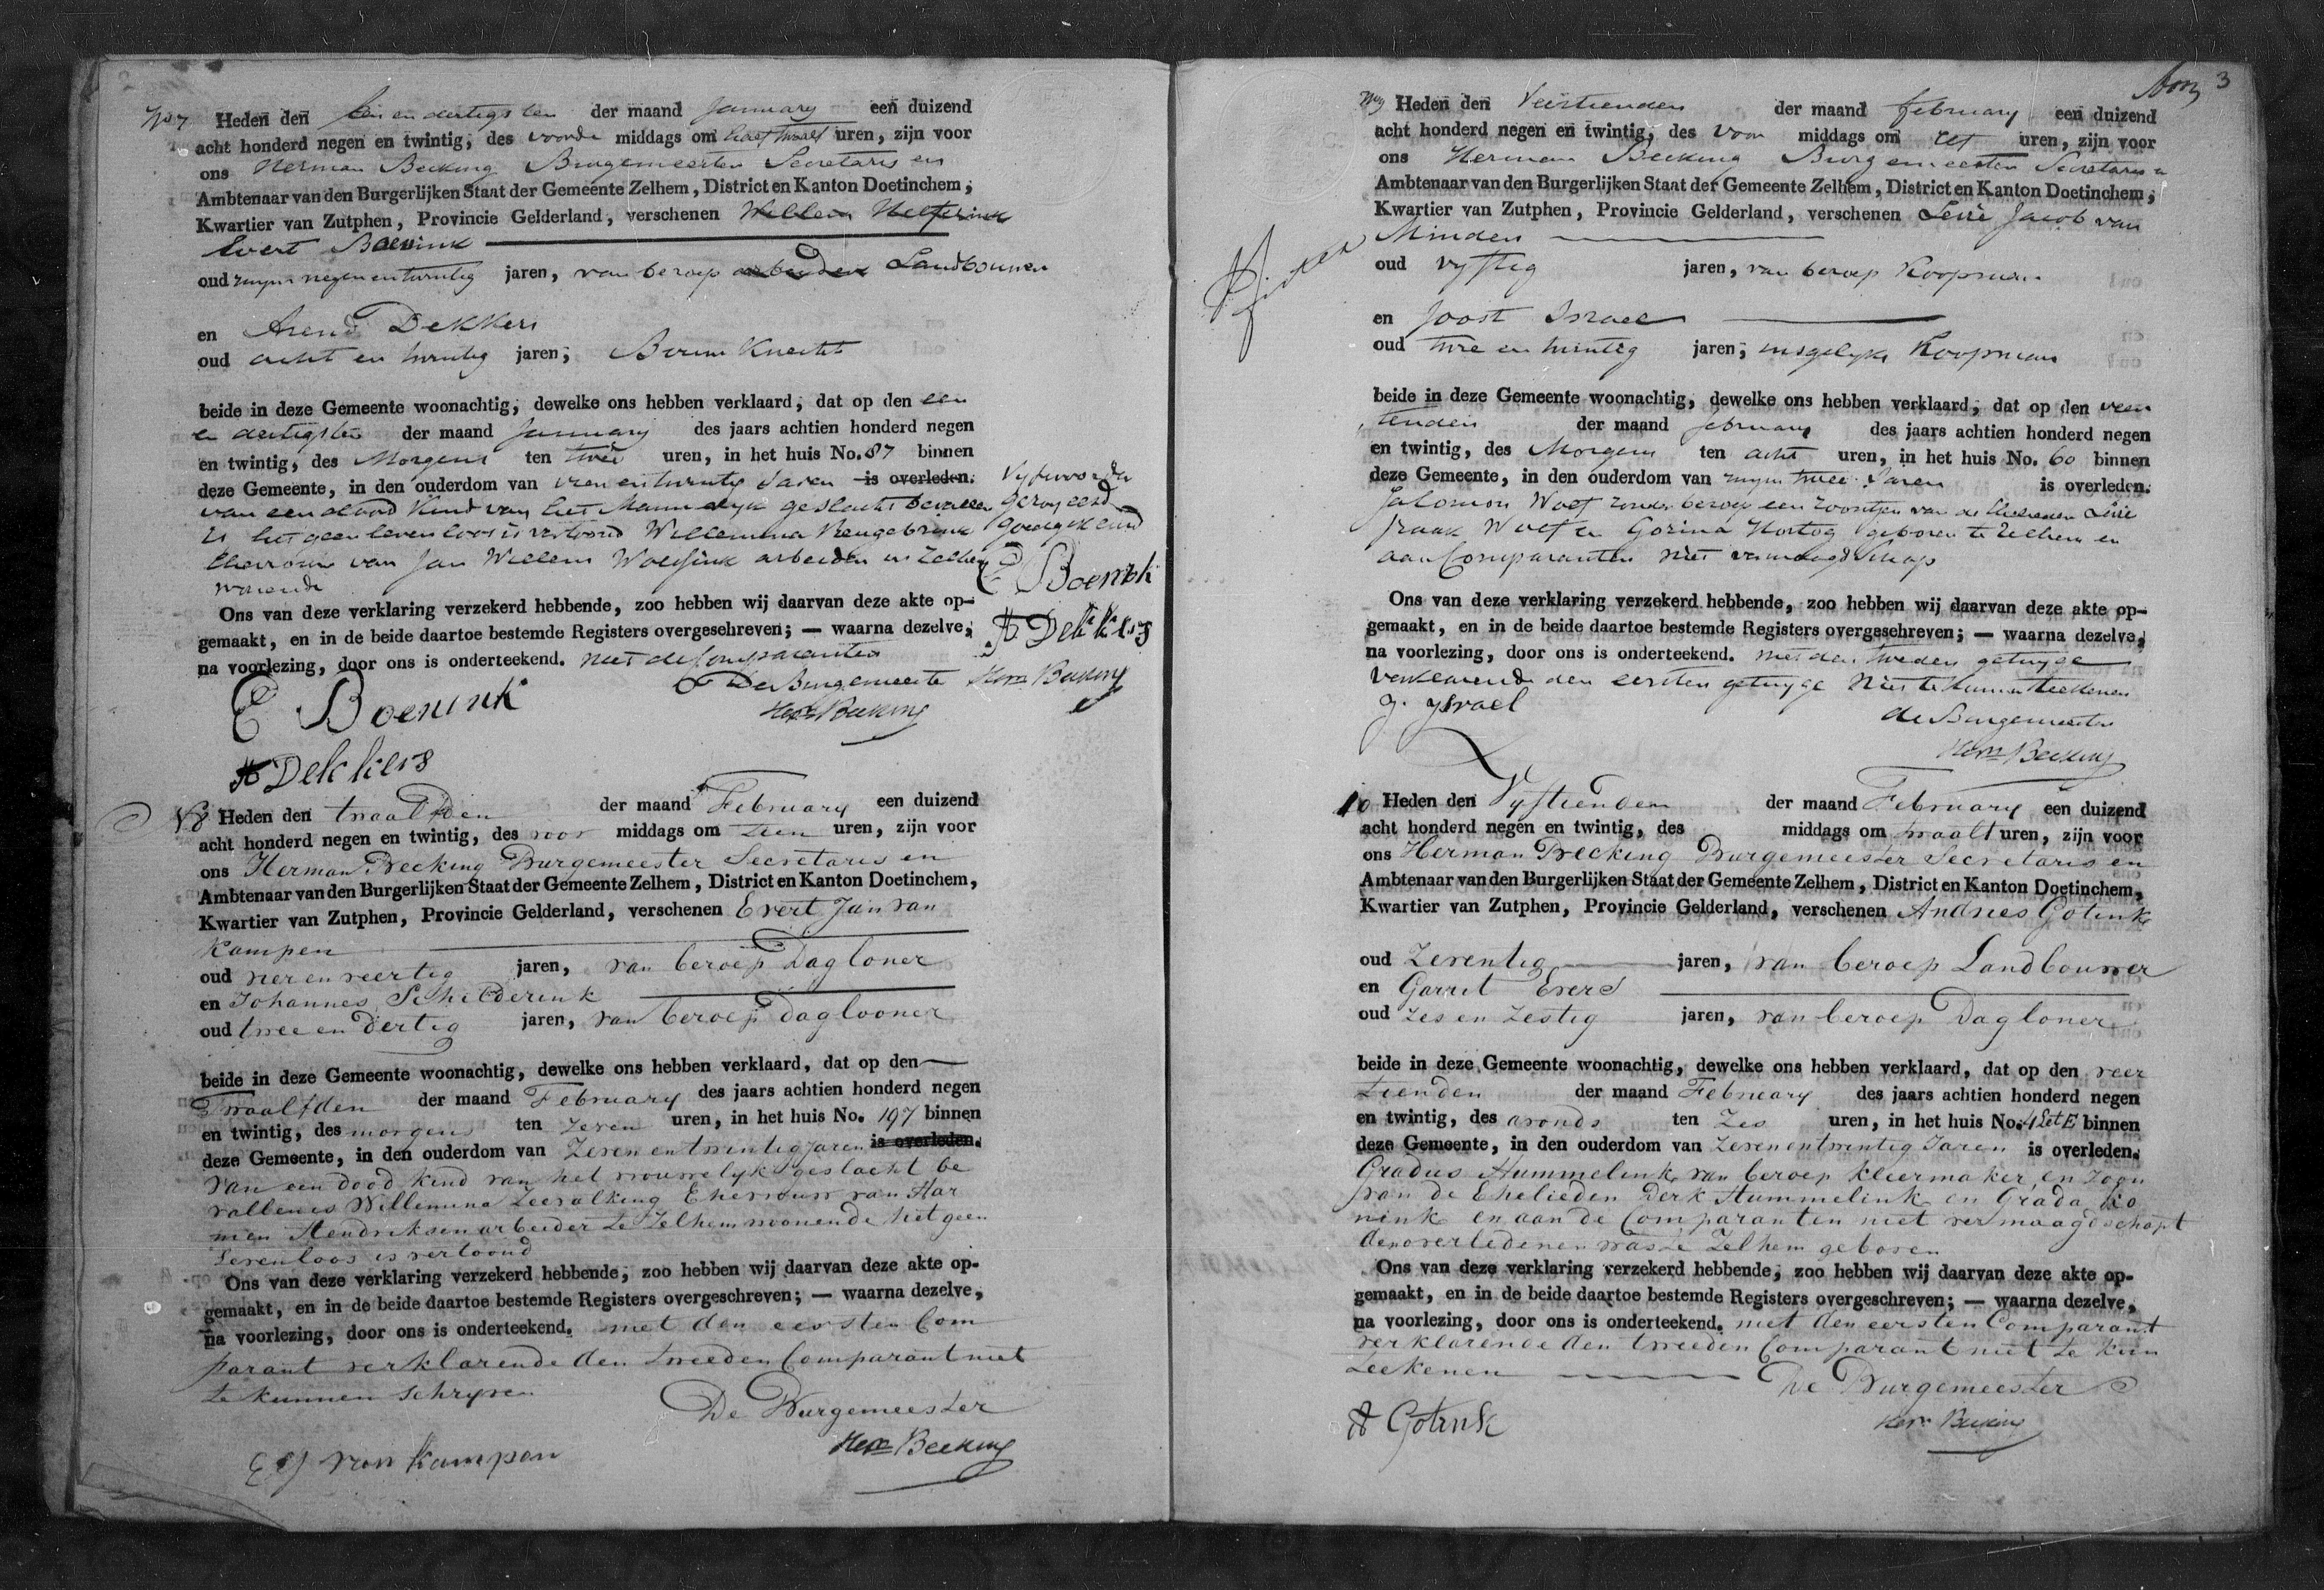 No 7 Heden den een en dertigsten der maand January een duizend
acht honderd negen en twintig, des voorde middags om half twaalf uren, zijn voor
ons Herman Becking Burgemeester Secretaris en
Ambtenaar van den Burgerlijken Staat der Gemeente Zelhem, District en Kanton Doetinchem,
Kwartier van Zutphen, Provincie Gelderland, verschenen Willem
Evert Boenink
oud ruym negen en twintig jaren, van beroep arbeider Landbouwer
en Arend Dekkers
oud acht en twintig jaren; Bouw Knecht
beide in deze Gemeente woonachtig, dewelke ons hebben verklaard, dat op den een
en dertigsten der maand January des jaars achtien honderd negen
en twintig, des Morgens ten twee uren, in het huis No. 87 binnen
deze Gemeente, in den ouderdom van vier en twintig Jaren is overleden.
van een dood Kind van het Mannelyk geslacht bevallen
is het geen levenloos is vertoond Willemina Rengebrink
Ehevrouw van Jan Willem Wolfsink arbeider in Zelhem
wonende
Vyf woorden
geroyeerd
goedgekeurd
E Boenink
A Dekkers
Hern Becking
Ons van deze verklaring verzekerd hebbende, zoo hebben wij daarvan deze akte op-
gemaakt, en in de beide daartoe bestemde Registers overgeschreven; — waarna dezelve,
na voorlezing, door ons is onderteekend. met de Comparanten
De Burgemeester
E Boenink
Hern Becking
A Dekkers
No 8 Heden den twaalfden der maand February een duizend
acht honderd negen en twintig, des voor middags om tien uren, zijn voor
ons Herman Becking Burgemeester Secretaris en
Ambtenaar van den Burgerlijken Staat der Gemeente Zelhem, District en Kanton Doetinchem,
Kwartier van Zutphen, Provincie Gelderland, verschenen Evert Jan van
Kampen
oud vier en veertig jaren, van beroep Dagloner
en Johannes Schilderink
oud twee en dertig jaren, van beroep Daglooner
beide in deze Gemeente woonachtig, dewelke ons hebben verklaard, dat op den
Twaalfden der maand February des jaars achtien honderd negen
en twintig, des morgens ten zeven uren, in het huis No. 197 binnen
deze Gemeente, in den ouderdom van Zeven en twintig jaren is overleden.
van een dood kind van het vrouwelyk geslacht be
vallen is Willemina Zeevalking Ehevrouw van Har
men Hendriksen arbeider te Zelhem woonende het geen
Levenloos is vertoond
Ons van deze verklaring verzekerd hebbende, zoo hebben wij daarvan deze akte op-
gemaakt, en in de beide daartoe bestemde Registers overgeschreven; — waarna dezelve,
na voorlezing, door ons is onderteekend. met den eersten Com
parant verklarende den tweeden Comparant niet
te kunnen schryven
De Burgemeester
Hern Becking
E J van Kampen
3
No 9 Heden den Veertienden der maand february een duizend
acht honderd negen en twintig, des voor middags om elf uren, zijn voor
ons Herman Becking Burgemeester Secretaris en
Ambtenaar van den Burgerlijken Staat der Gemeente Zelhem, District en Kanton Doetinchem,
Kwartier van Zutphen, Provincie Gelderland, verschenen Levie Jacob van
Minden
oud vyftig jaren, van beroep Koopman
en Joost Israel
oud twee en twintig jaren; insgelyks Koopman
beide in deze Gemeente woonachtig, dewelke ons hebben verklaard, dat op den veer
tienden der maand february des jaars achtien honderd negen
en twintig, des Morgens ten acht uren, in het huis No. 60 binnen
deze Gemeente, in den ouderdom van ruym twee Jaren is overleden.
Salomon Wolf zonder beroep een zoontjen van de Ehelieden Levie
Izaak Wolf en Gorina Hartog geboren te Zelhem en
aan Comparanten niet vermaagdschap
Ons van deze verklaring verzekerd hebbende, zoo hebben wij daarvan deze akte op-
gemaakt, en in de beide daartoe bestemde Registers overgeschreven; — waarna dezelve,
na voorlezing, door ons is onderteekend. met den tweeden getuyge
verklarende den eersten getuyge niet te kunnen teekenen
J. Ysrael
de Burgemeester
Hern Becking
10 Heden den Vyftienden der maand February een duizend
acht honderd negen en twintig, des middags om twaalf uren, zijn voor
ons Herman Becking Burgemeester Secretaris en
Ambtenaar van den Burgerlijken Staat der Gemeente Zelhem, District en Kanton Doetinchem,
Kwartier van Zutphen, Provincie Gelderland, verschenen Andries Gotink
oud Zeventig jaren, van beroep Landbouwer
en Garrit Evers
oud Zes en Zestig jaren, van beroep Dagloner
beide in deze Gemeente woonachtig, dewelke ons hebben verklaard, dat op den veer
tienden der maand February des jaars achtien honderd negen
en twintig, des avonds ten Zes uren, in het huis No. 4 Let E binnen
deze Gemeente, in den ouderdom van Zeven en twintig Jaren is overleden.
Gradus Hummelink van beroep kleermaker, en Zoon
van de Ehelieden Derk Hummelink en Grada Ko
nink en aan de Comparanten niet vermaagdschapt
den overledenen was te Zelhem geboren
Ons van deze verklaring verzekerd hebbende, zoo hebben wij daarvan deze akte op-
gemaakt, en in de beide daartoe bestemde Registers overgeschreven; — waarna dezelve,
na voorlezing, door ons is onderteekend. met den eersten Comparant
verklarende den tweeden Comparant niet te kun
teekenen
De Burgemeester
A Gotink
Hern Becking